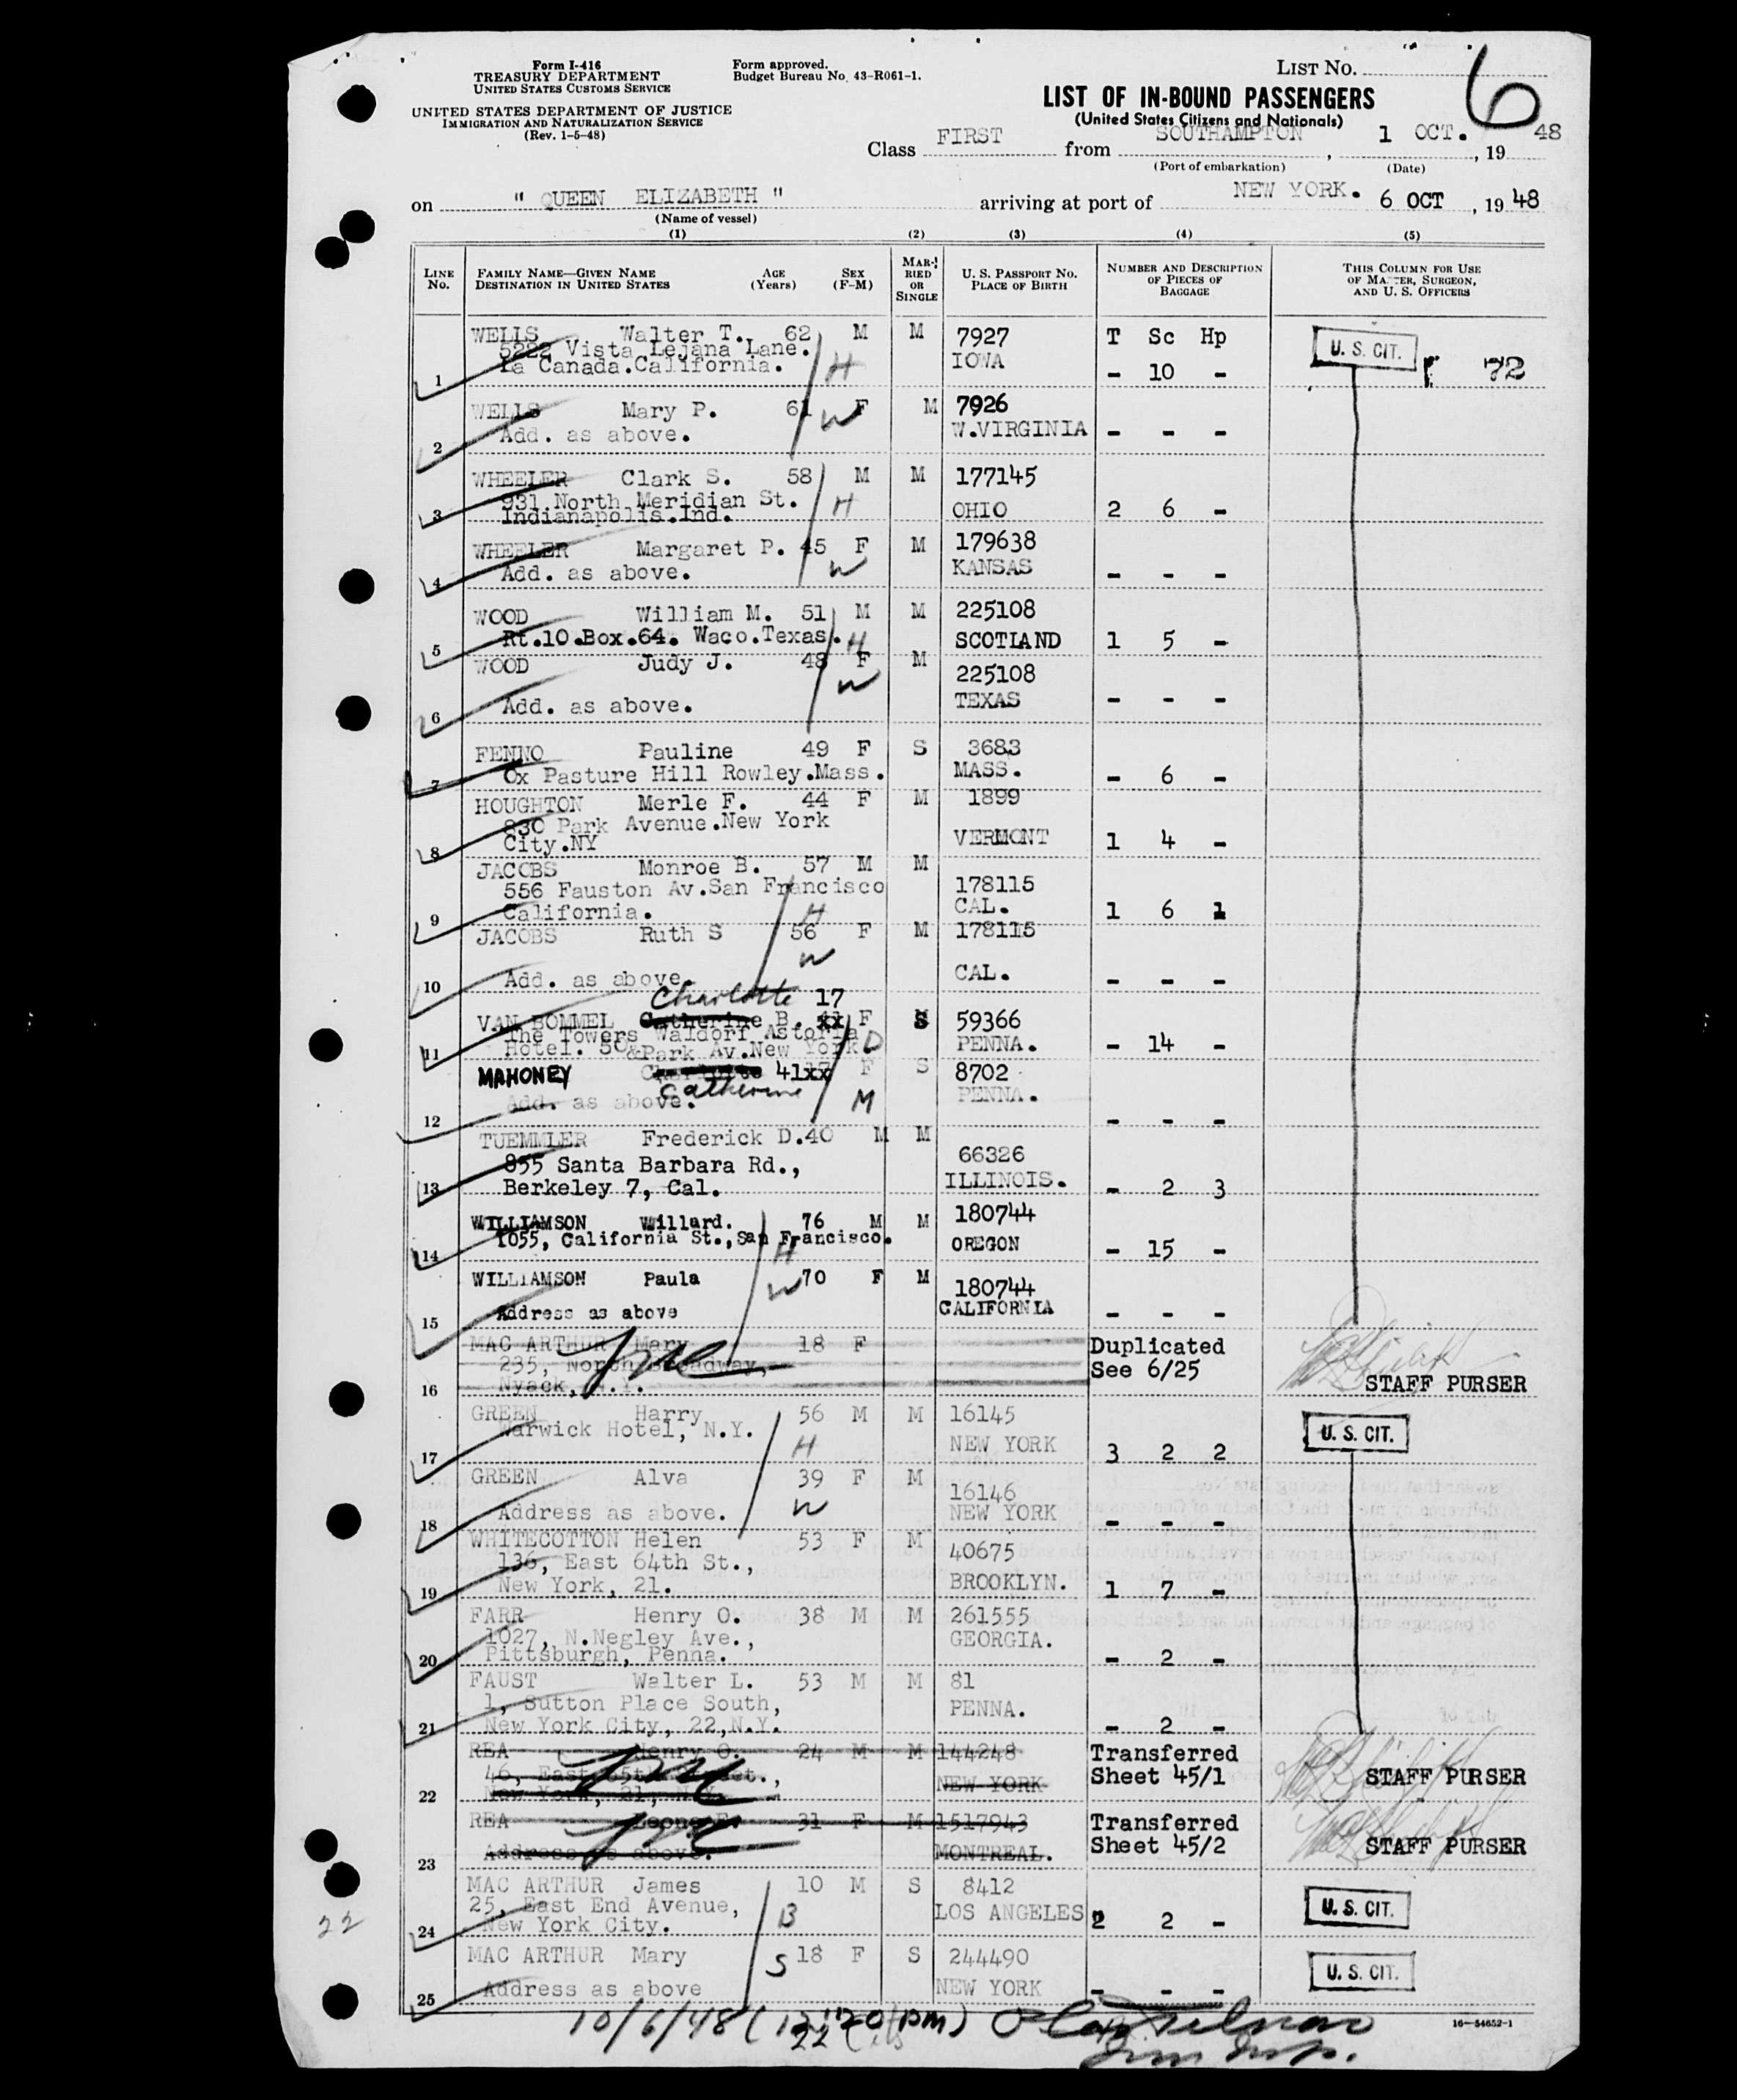 Form I-416
TREASURY DEPARTMENT
UNITED STATES CUSTOMS SERVICE
UNITED STATES DEPARTMENT OF JUSTICE
IMMIGRATION AND NATURALIZATION SERVICE
(Rev. 1-5-48)
Form approved.
Budget Bureau No. 43-R061-1.
LIST No. 6
LIST OF IN-BOUND PASSENGERS
(United States Citizens and Nationals)
Class FIRST from SOUTHAMPTON , 1 OCT. , 19 48
(Port of embarkation) (Date)
on " QUEEN ELIZABETH " arriving at port of NEW YORK. 6 OCT , 19 48
(Name of vessel)
(1) (2) (3) (4) (5)
LINE No. FAMILY NAME—GIVEN NAME DESTINATION IN UNITED STATES AGE (Years) SEX (F-M) MARRIED OR SINGLE U. S. PASSPORT NO. PLACE OF BIRTH NUMBER AND DESCRIPTION OF PIECES OF BAGGAGE THIS COLUMN FOR USE OF MASTER, SURGEON, AND U. S. OFFICERS
WELLS Walter T. 62 M M 7927 T Sc Hp U. S. CIT. 72
5222 Vista Lejana Lane.
1 La Canada.California. H IOWA - 10 -
WELLS Mary P. 61 W F M 7926
2 Add. as above. W.VIRGINIA - - -
WHEELER Clark S. 58 M M 177145
931 North Meridian St. H
3 Indianapolis.Ind. OHIO 2 6 -
WHEELER Margaret P. 45 F M 179638
4 Add. as above. W KANSAS - - -
WOOD William M. 51 M M 225108
5 Rt.10.Box.64. Waco.Texas. H SCOTLAND 1 5 -
WOOD Judy J. 48 F M 225108
6 Add. as above. W TEXAS - - -
FENNO Pauline 49 F S 3683
7 Ox Pasture Hill Rowley.Mass. MASS. - 6 -
HOUGHTON Merle F. 44 F M 1899
830 Park Avenue.New York
8 City.NY VERMONT 1 4 -
JACOBS Monroe B. 57 M M
556 Fauston Av.San Francisco 178115
9 California. H CAL. 1 6 1
JACOBS Ruth S 56 F M 178115
W
10 Add. as above. CAL. - - -
Charlotte 17
VAN BOMMEL Catherine B. xx F S 59366
The Towers Waldorf Astoria
11 Hotel. 50 & Park Av.New York. D PENNA. - 14 -
MAHONEY Charlotte 41xx F S 8702
Catherine
12 Add. as above. M PENNA. - - -
TUEMMLER Frederick D.40 M M
855 Santa Barbara Rd., 66326
13 Berkeley 7, Cal. ILLINOIS. - 2 3
WILLIAMSON Willard. 76 M M 180744
14 1055, California St.,San Francisco. H OREGON - 15 -
WILLIAMSON Paula W 70 F M 180744
15 Address as above CALIFORNIA - - -
MAC ARTHUR Mary 18 F Duplicated
235, North Broadway, See 6/25
16 Nyack, N.Y. STAFF PURSER
GREEN Harry 56 M M 16145 U. S. CIT.
17 Warwick Hotel, N.Y. H NEW YORK 3 2 2
GREEN Alva 39 F M 16146
18 Address as above. W NEW YORK - - -
WHITECOTTON Helen 53 F M 40675
136, East 64th St.,
19 New York, 21. BROOKLYN. 1 7 -
FARR Henry O. 38 M M 261555
1027, N.Negley Ave., GEORGIA.
20 Pittsburgh, Penna. - 2 -
FAUST Walter L. 53 M M 81
1, Sutton Place South, PENNA.
21 New York City, 22,N.Y. - 2 -
REA Henry O. 24 M M 144248 Transferred
46, East 65th Street., NEW YORK Sheet 45/1 STAFF PURSER
22 New York, 21, N.Y.
REA 31 F M 1517943 Transferred
23 Address as above. MONTREAL. Sheet 45/2 STAFF PURSER
MAC ARTHUR James 10 M S 8412 U. S. CIT.
25, East End Avenue, B LOS ANGELES 2 2 -
22 24 New York City.
MAC ARTHUR Mary S 18 F S 244490 U. S. CIT.
25 Address as above NEW YORK - - -
16—54652-1
10/6/48 (12:20 pm)
22